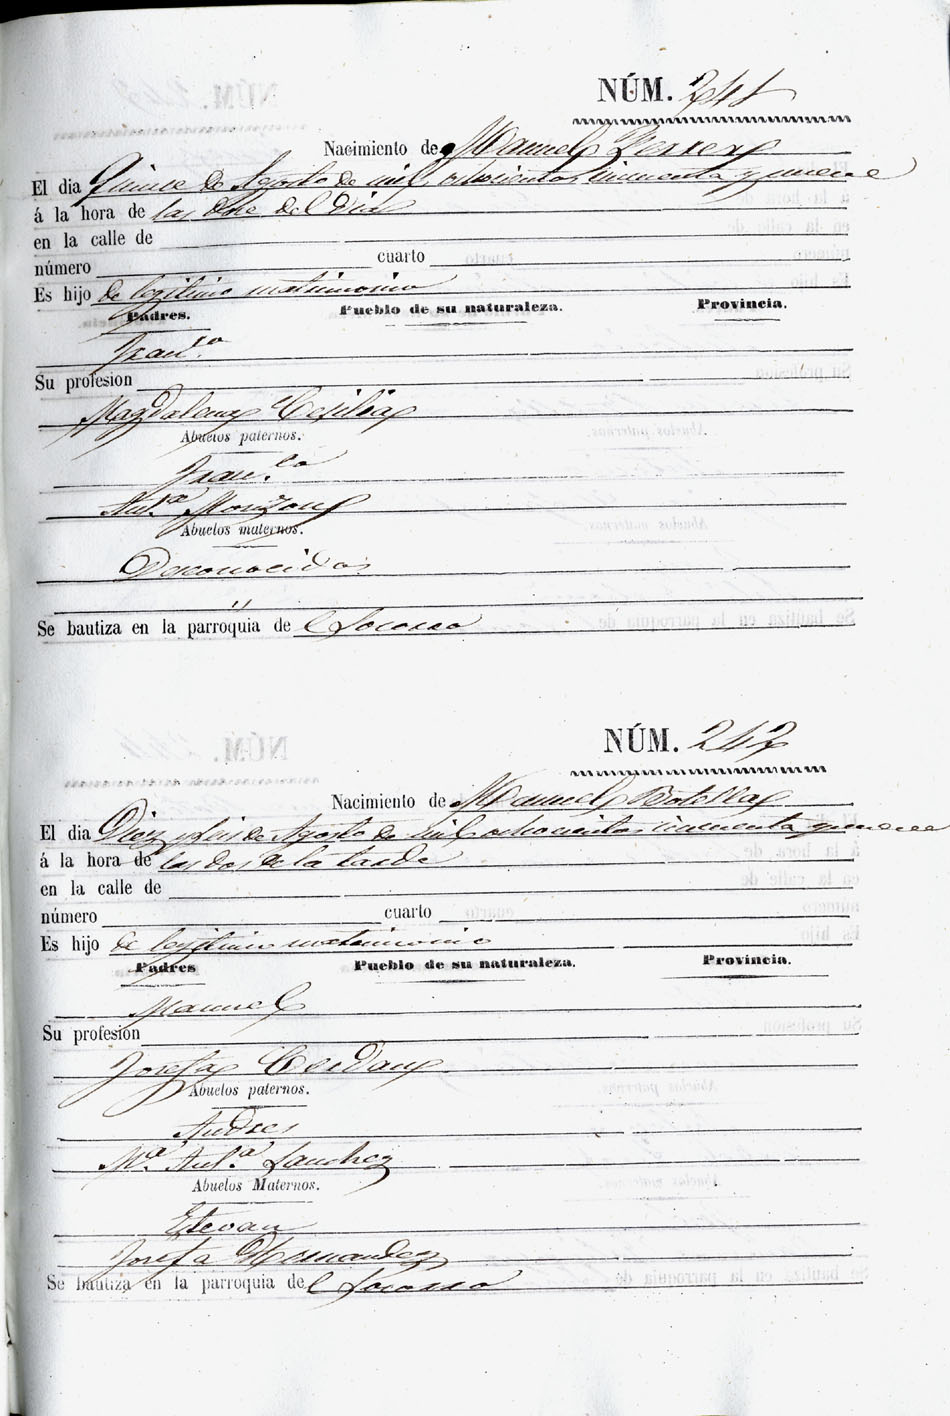 NÚM. 241
Nacimiento de Manuel Herrero
El dia Quince de Agosto de mil ochocientos cincuenta y nueve
á la hora de las dose del dia
en la calle de
número cuarto
Es hijo de legitimo matrimonio
Padres. Pueblo de su naturaleza. Provincia.
Fran.co
Su profesion
Magdalena
Abuelos paternos.
Fran.co
Ant.a Monzon
Abuelos maternos.
Desconocidos
"
Se bautiza en la parroquia de el Socorro
NÚM. 242
Nacimiento de Manuel Botella
El dia Diez y seis de Agosto de mil ochocientos cincuenta y nueve
á la hora de las dos de la tarde
en la calle de
número cuarto
Es hijo de legitimo matrimonio
Padres Pueblo de su naturaleza. Provincia.
Manuel
Su profesion
Josefa Cerdan
Abuelos paternos.
Andres
M.a Ant.a Sanchez
Abuelos Maternos.
Estevan
Josefa Hernandez
Se bautiza en la parroquia de el Socorro